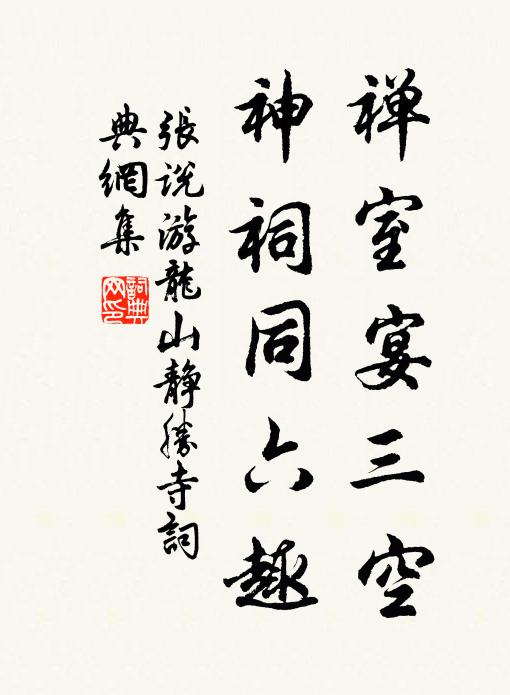 禅室宴三空
神祠同六趣
張説游龍山静勝寺詞
典網集
詞典
网印